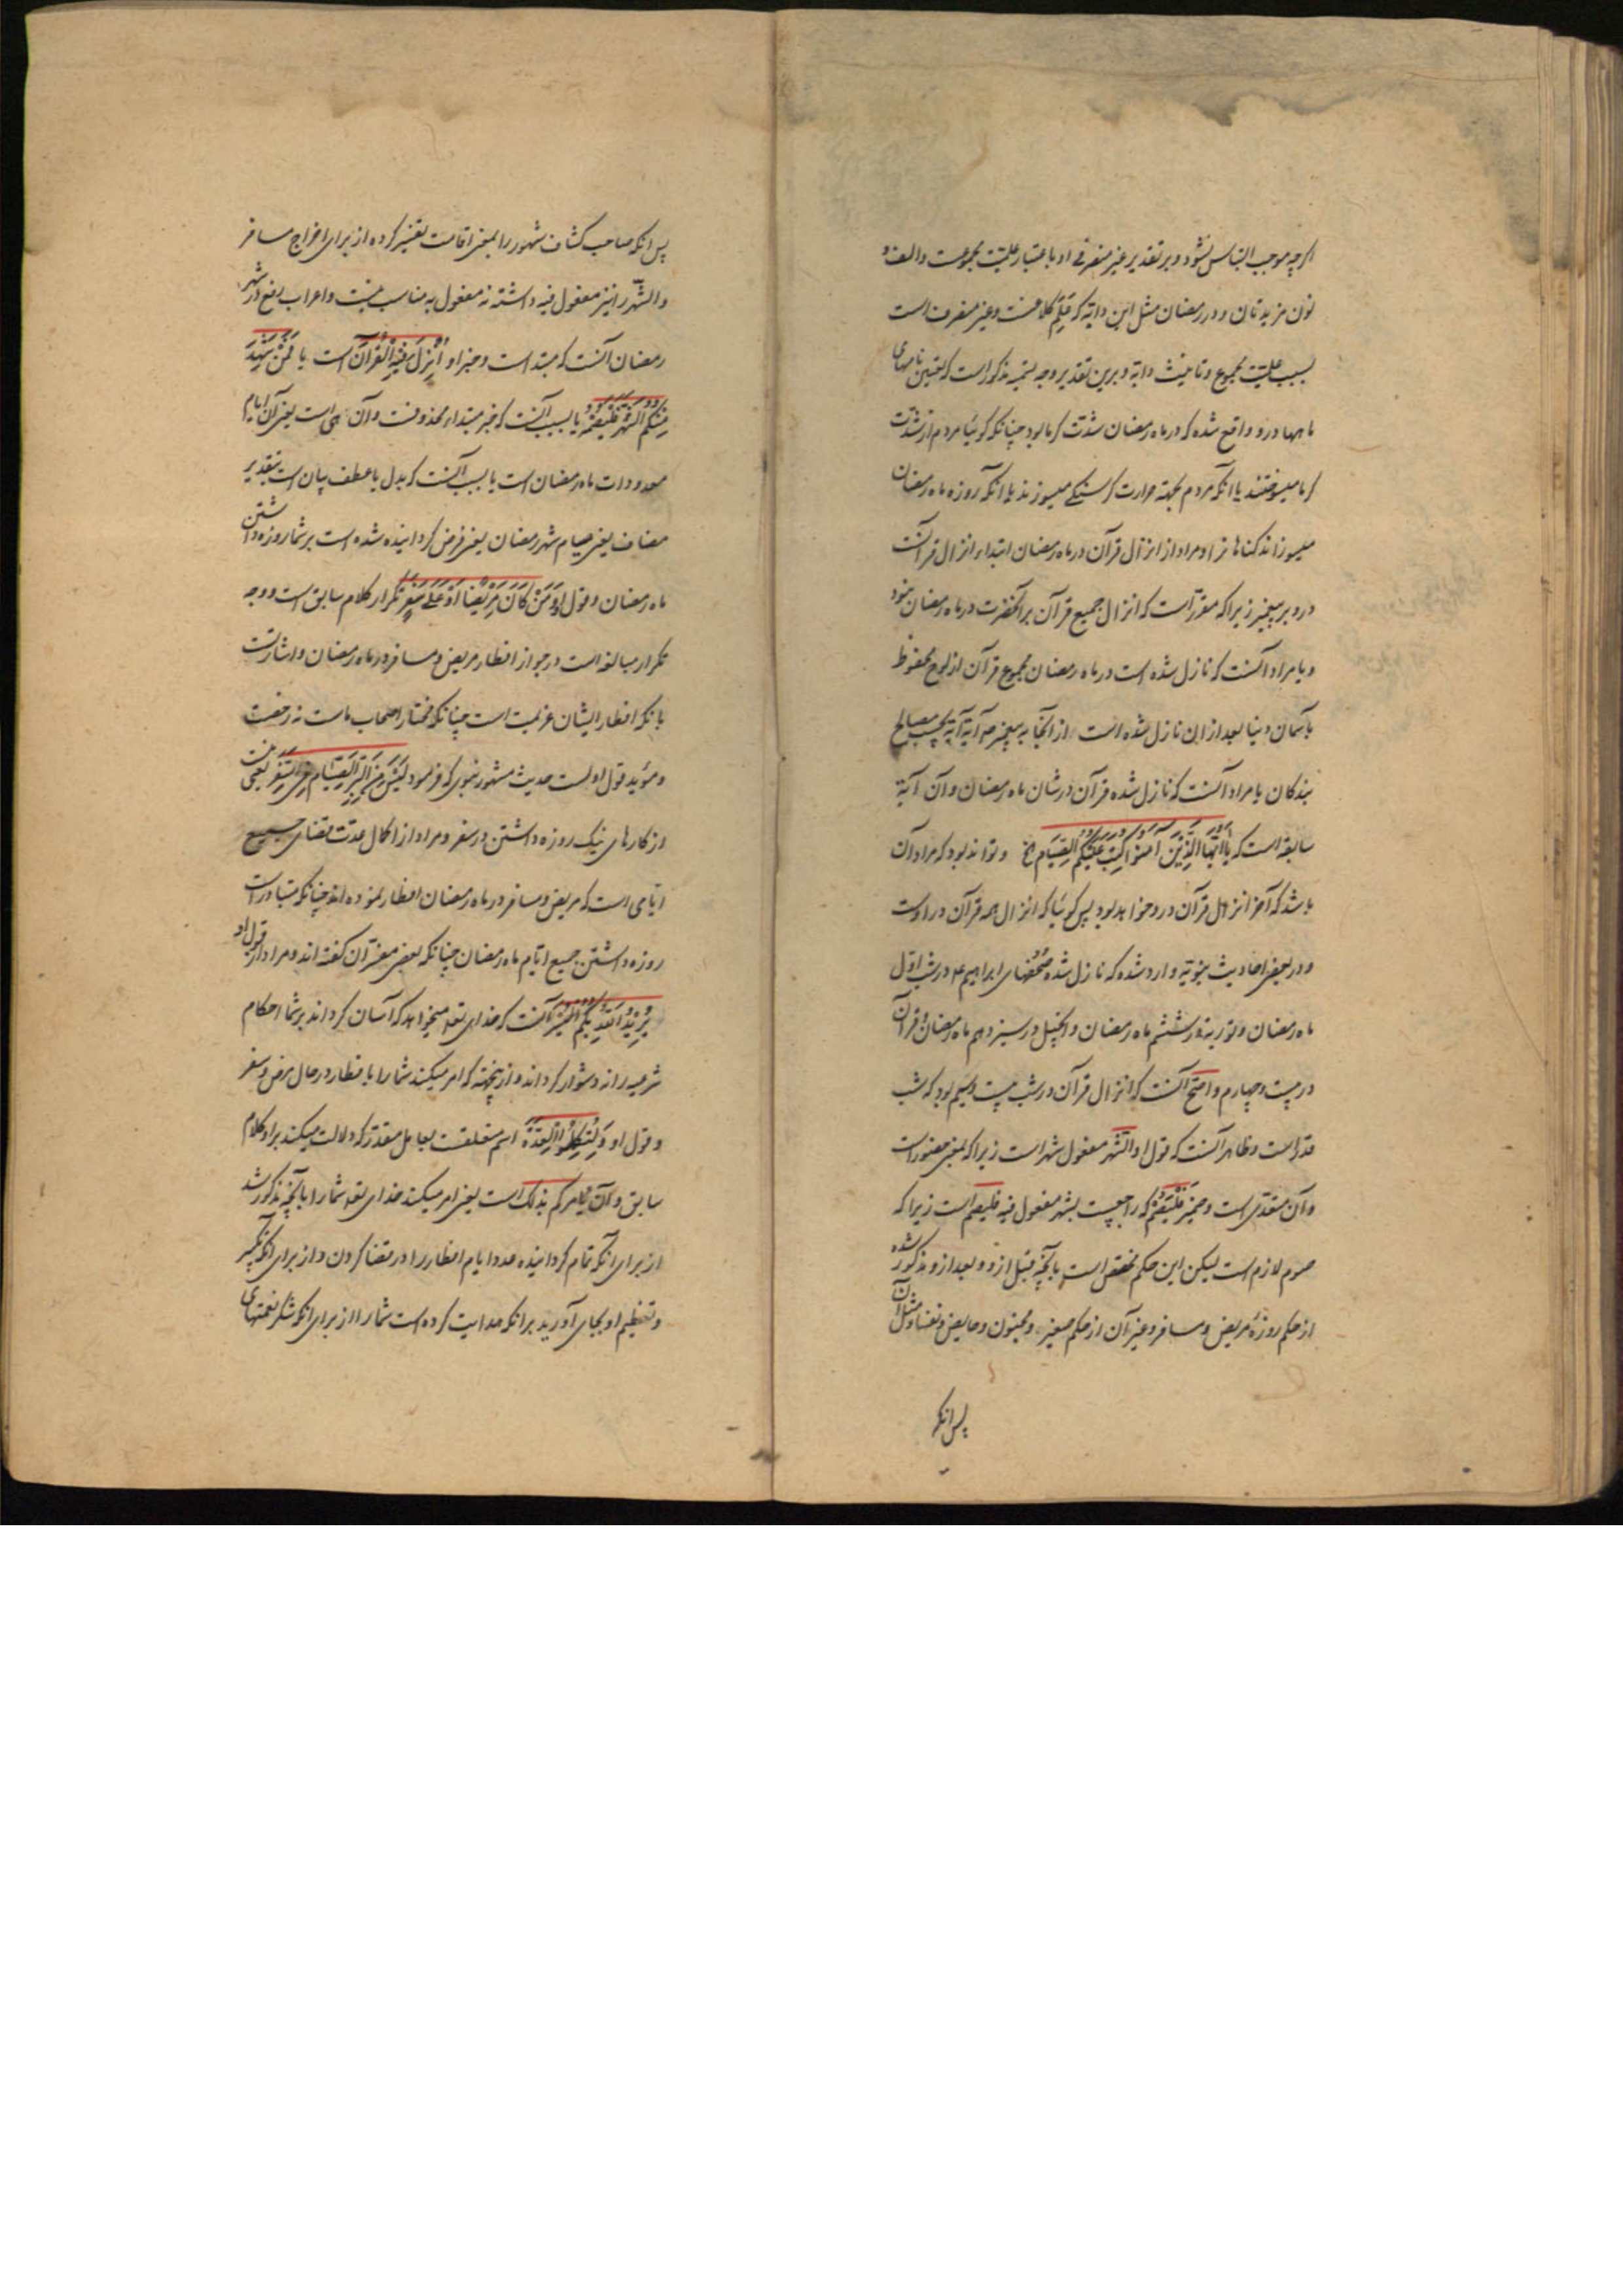 اگرچه موجب التباس نشود و بر تقدیر غیر منصرفی او باعتبار علمیّت مجموعست و الف و
نون مزیدتان و در رمضان مثل ابن دایه که علم کلاغست و غیر منصرف است
بسبب علمیّت مجموع و تانیث دایه و برین تقدیر وجه تسمیه مذکور است که تعیین نامهای
ماهها درو واقع شده که در ماه رمضان شدّت گرما بود چنانکه گوئیا مردم از شدّت
گرما میسوختند یا انکه مردم بجهته حرارت گرسنگی میسوزند یا انکه روزه ماه رمضان
میسوزاند گناهانرا و مراد از انزال قرآن در ماه رمضان ابتداء انزال قرآنست
درو بر پیغمبر زیرا که مقرّر است که انزال جمیع قرآن بر آنحضرت در ماه رمضان نبود
و یا مراد آنست که نازل شده است در ماه رمضان مجموع قرآن از لوح محفوظ
بآسمان دنیا بعد ازان نازل شده است از آنجا به پیغمبر صه آیة آیة بحسب مصالح
بندگان یا مراد آنست که نازل شده قرآن در شان ماه رمضان و آن آیة
سابقه است که یا أیّها الّذین آمنوا کتب علیکم الصّیام الخ و تواند بود که مراد آن
باشد که آخر انزال قرآن درو خواهد بود پس گوئیا که انزال همه قرآن در اوست
و در بعضی احادیث نبویّه وارد شده که نازل شده صحفهای ابراهیم ع در شب اوّل
ماه رمضان و توریة در ششم ماه رمضان و انجیل در سیزدهم ماه رمضان و قرآن
در بیست و چهارم و اصحّ آنست که انزال قرآن در شب بیست و سیم بود که شب
قدر است و ظاهر آنست که قول او الشّهر مفعول شهد است زیرا که بمعنی حضور است
و آن متعدّی است و ضمیر فلیصمه که راجعست بشهر مفعول فیه فلیصم است زیرا که
صوم لازم است لیکن این حکم مختصّ است بآنچه قبل ازو و بعد ازو مذکور شده
از حکم روزهٔ مریض و مسافر و غیر آن از حکم صغیر و مجنون و حایض و نفسا و مثل آن
پس انکه
پس انکه صاحب کشاف شهود را بمعنی اقامت تفسیر کرده از برای اخراج مسافر
و الشّهر را نیز مفعول فیه داشته نه مفعول به مناسب نیست و اعراب رفع در شهر
رمضان آنست که مبتداست و خبر او أنزل فیه القرآن است یا فمن شهد
منکم الشّهر فلیصمه یا بسبب آنست که خبر مبتداء محذوفست و آن هی است یعنی آن ایام
معدودات ماه رمضان است یا بسبب آنست که بدل یا عطف بیان است بتقدیر
مضاف یعنی صیام شهر رمضان یعنی فرض گردانیده شده است بر شما روزه داشتن
ماه رمضان و قول او و من کان مریضا أو علی سفر تکرار کلام سابق است و وجه
تکرار مبالغه است در جواز افطار مریض و مسافر در ماه رمضان و اشارتست
بانکه افطار ایشان عزیمت است چنانکه مختار اصحاب ماست نه رخصت
و مؤید قول اوّلست حدیث مشهور نبوی که فرمود لیس من البرّ الصّیام فی السّفر یعنی نیست
از کارهای نیک روزه داشتن در سفر و مراد از اکمال عدّت قضای جمیع
ایّامی است که مریض و مسافر در ماه رمضان افطار نموده اند چنانکه متبادر است
روزه داشتن جمیع ایّام ماه رمضان چنانکه بعضی مفسّران گفته اند و مراد از قول او
یرید الله بکم الیسر آنست که خدای تعه میخواهد که آسان گرداند بر شما احکام
شرعیه را نه دشوار گرداند و ازینجهته که امر میکند شما را بافطار در حال مرض و سفر
و قول او و لتکملوا العدّة اسم متعلقست بعامل مقدّر که دلالت میکند برو کلام
سابق و آن یامرکم بذلک است یعنی امر میکند خدای تعه شما را بآنچه مذکور شد
از برای آنکه تمام گردانیده عدد ایام افطار را در قضا کردن و از برای آنکه تکبیر
و تعظیم او بجای آورید برانکه هدایت کرده است شما را از برای انکه شکر نعمتهای